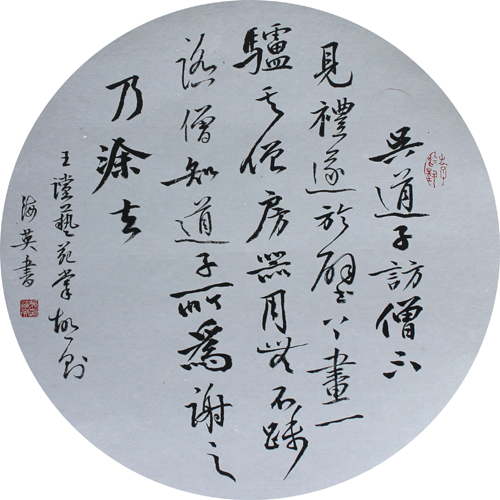 吳道子訪僧不
見禮遂於壁上畫一
驢其僧房器用無不踐
踏僧知道子所爲謝之
乃涂去
王讜藝苑掌故一則
海英書